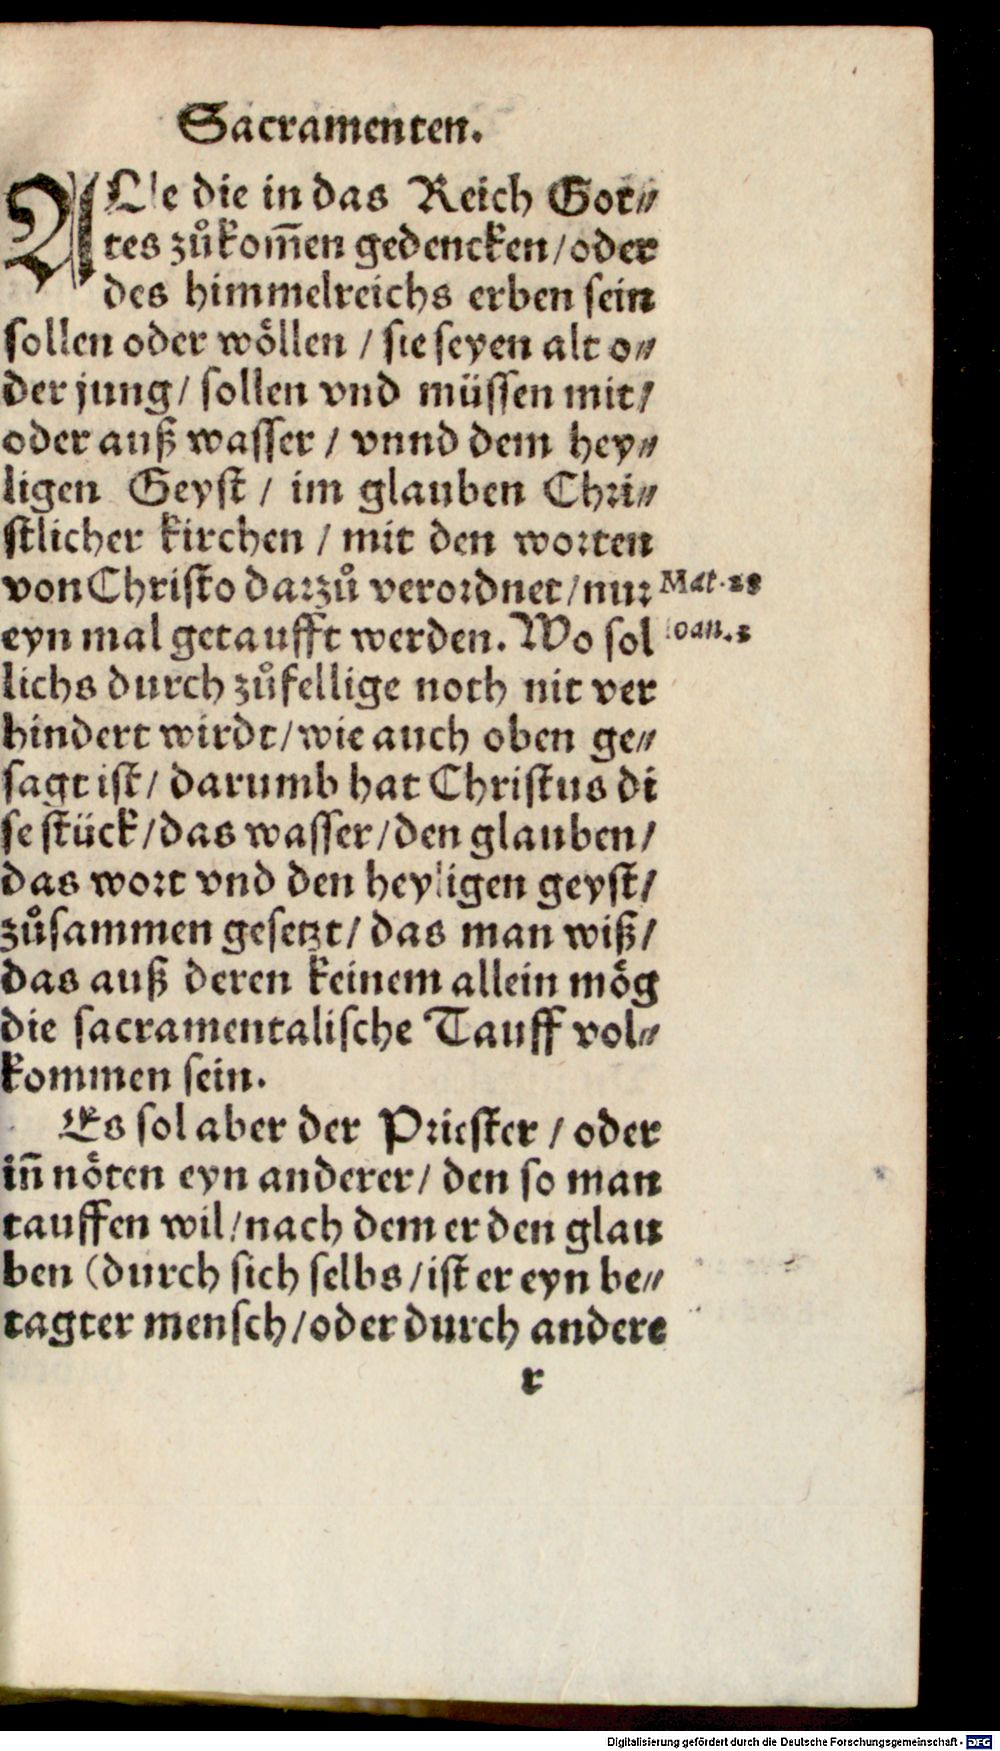 Sacramenten.
ALle die in das Reich Got⸗
tes zuͦkom̃en gedencken / oder
des himmelreichs erben sein
sollen oder woͤllen / sie seyen alt o⸗
der jung / sollen vnd müssen mit /
oder auß wasser / vnnd dem hey⸗
ligen Geyst / im glauben Chri⸗
stlicher kirchen / mit den worten
von Christo darzuͦ verordnet / nur Mat. 28
eyn mal getaufft werden. Wo sol Ioan. 3
lichs durch zuͦfellige noth nit ver
hindert wirdt / wie auch oben ge⸗
sagt ist / darumb hat Christus di
se stück / das wasser / den glauben /
das wort vnd den heyligen geyst /
zuͦsammen gesetzt / das man wiß /
das auß deren keinem allein moͤg
die sacramentalische Tauff vol⸗
kommen sein.
Es sol aber der Priester / oder
iñ noͤten eyn anderer / den so man
tauffen wil / nach dem er den glau
ben (durch sich selbs / ist er eyn be⸗
tagter mensch / oder durch andere
r
Digitalisierung gefördert durch die Deutsche Forschungsgemeinschaft - DFG